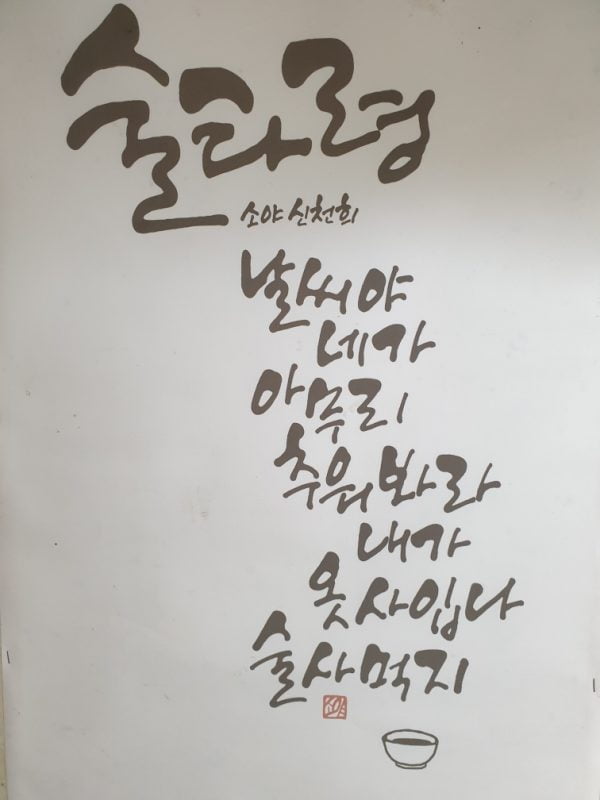 술타령
소야 신천희
날씨야
네가
아무리
추워봐라
내가
옷사입나
술사먹지